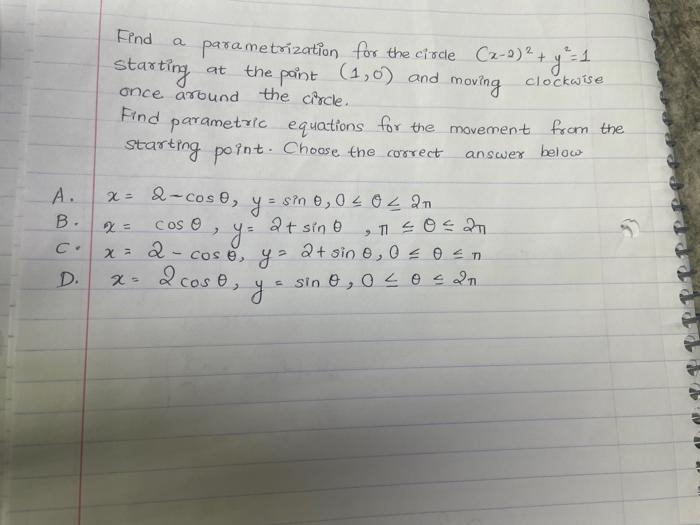 Find a parametrization for the circle (x-2)² + y² = 1
starting at the point (1,0) and moving clockwise
once around the circle.
Find parametric equations for the movement from the
starting point. Choose the correct answer below
A. x = 2 - cos θ, y = sin θ, 0 ≤ θ ≤ 2π
B. x = cos θ, y = 2 + sin θ, π ≤ θ ≤ 2π
C. x = 2 - cos θ, y = 2 + sin θ, 0 ≤ θ ≤ π
D. x = 2 cos θ, y = sin θ, 0 ≤ θ ≤ 2π